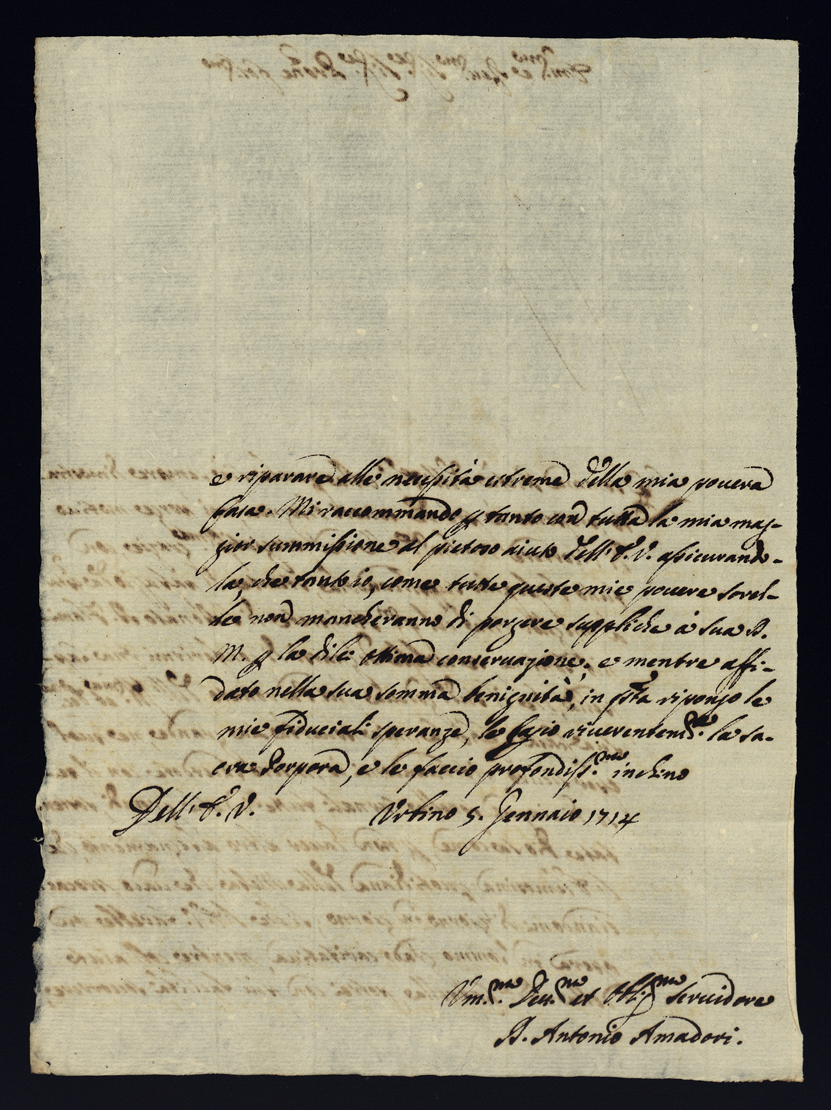 e riparare alle necessità estreme della mia povera
Casa. Mi raccommando p tanto con tutta la mia mag-
gior summissione al pietoso aiuto dell'E.V. assicurando-
la, che tanto io, come tutte queste mie povere sorel-
le non mancheranno di porgere suppliche à sua D.
M. p la di lei ottima conservazione. e mentre affi-
dato nella sua somma benignità, in qsta ripongo le
mie fiduciali speranze, le bacio riverentem.te la sa-
cra Porpora, e le faccio profondiss.mo inchino
Dell'E.V. Urbino 5. Gennaio 1714
Um.mo Dev.mo et Obl.mo Servidore
Antonio Amadori.